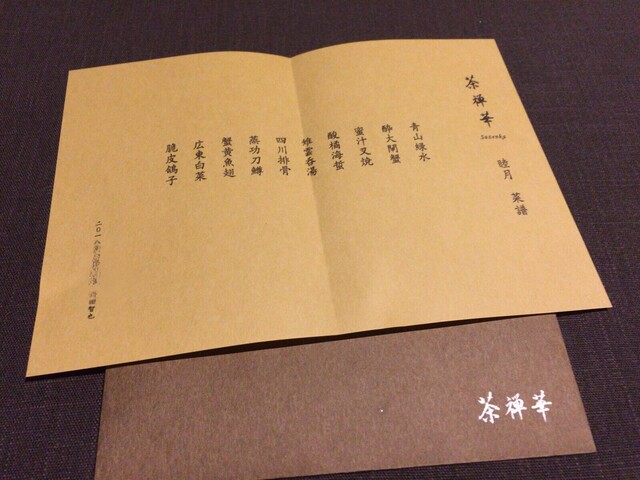 茶禅華
Sazenka
睦月 菜譜
青山緑水
酔大閘蟹
蜜汁叉焼
酸橘海蜇
雉雲呑湯
四川排骨
蒸功刀鱒
蟹黄魚翅
広東白菜
脆皮鴿子
川田智也
茶禅華